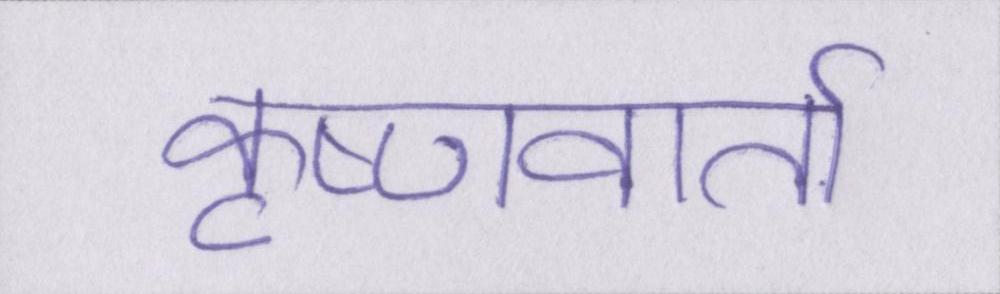 कृष्णवार्ता